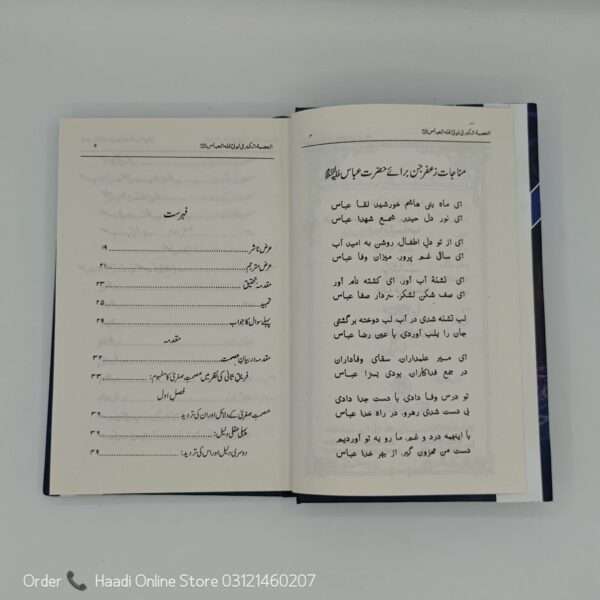 العصمة الکبریٰ لولی اللہ العباس
۴
مناجات زعفر جن برائے حضرت عباس علیہ السلام
ای ماه بنی هاشم خورشید لقا عباس
ای نور دل حیدر، شمع شهدا عباس
ای از تو دل اطفال، روشن به امید آب
ای ساقی غم پرور، میزان وفا عباس
ای تشنهٔ آب آور، ای کشته نام آور
ای صف شکن لشکر، سردار صفا عباس
لب تشنه شدی در آب، لب دوخته برگشتی
جان را بلب آوردی، با عین رضا عباس
ای میر علمداران، سقای وفاداران
در جمع فداکاران، بودی بسزا عباس
تو درس وفا دادی، با دست جدا دادی
بی دست شدی رهرو، در راه خدا عباس
با اینهمه درد و غم، ما رو به تو آوردیم
دست من محزون گیر، از بهر خدا عباس
العصمة الکبریٰ لولی اللہ العباس
۵
فہرست
عرض ناشر ۱۹
عرض مترجم ۲۱
مقدمہ تحقیق ۲۳
تمہید ۲۵
پہلے سوال کا جواب ۲۹
مقدمہ
مقدمہ در بیان عصمت ۳۲
فریق ثانی کی نظر میں عصمتِ صغریٰ کا مفہوم: ۳۳
فصل اول
عصمتِ صغریٰ کے دلائل اور ان کی تردید ۳۹
پہلی عقلی دلیل: ۳۹
دوسری دلیل اور اس کی تردید: ۳۹
Order 📞 Haadi Online Store 03121460207